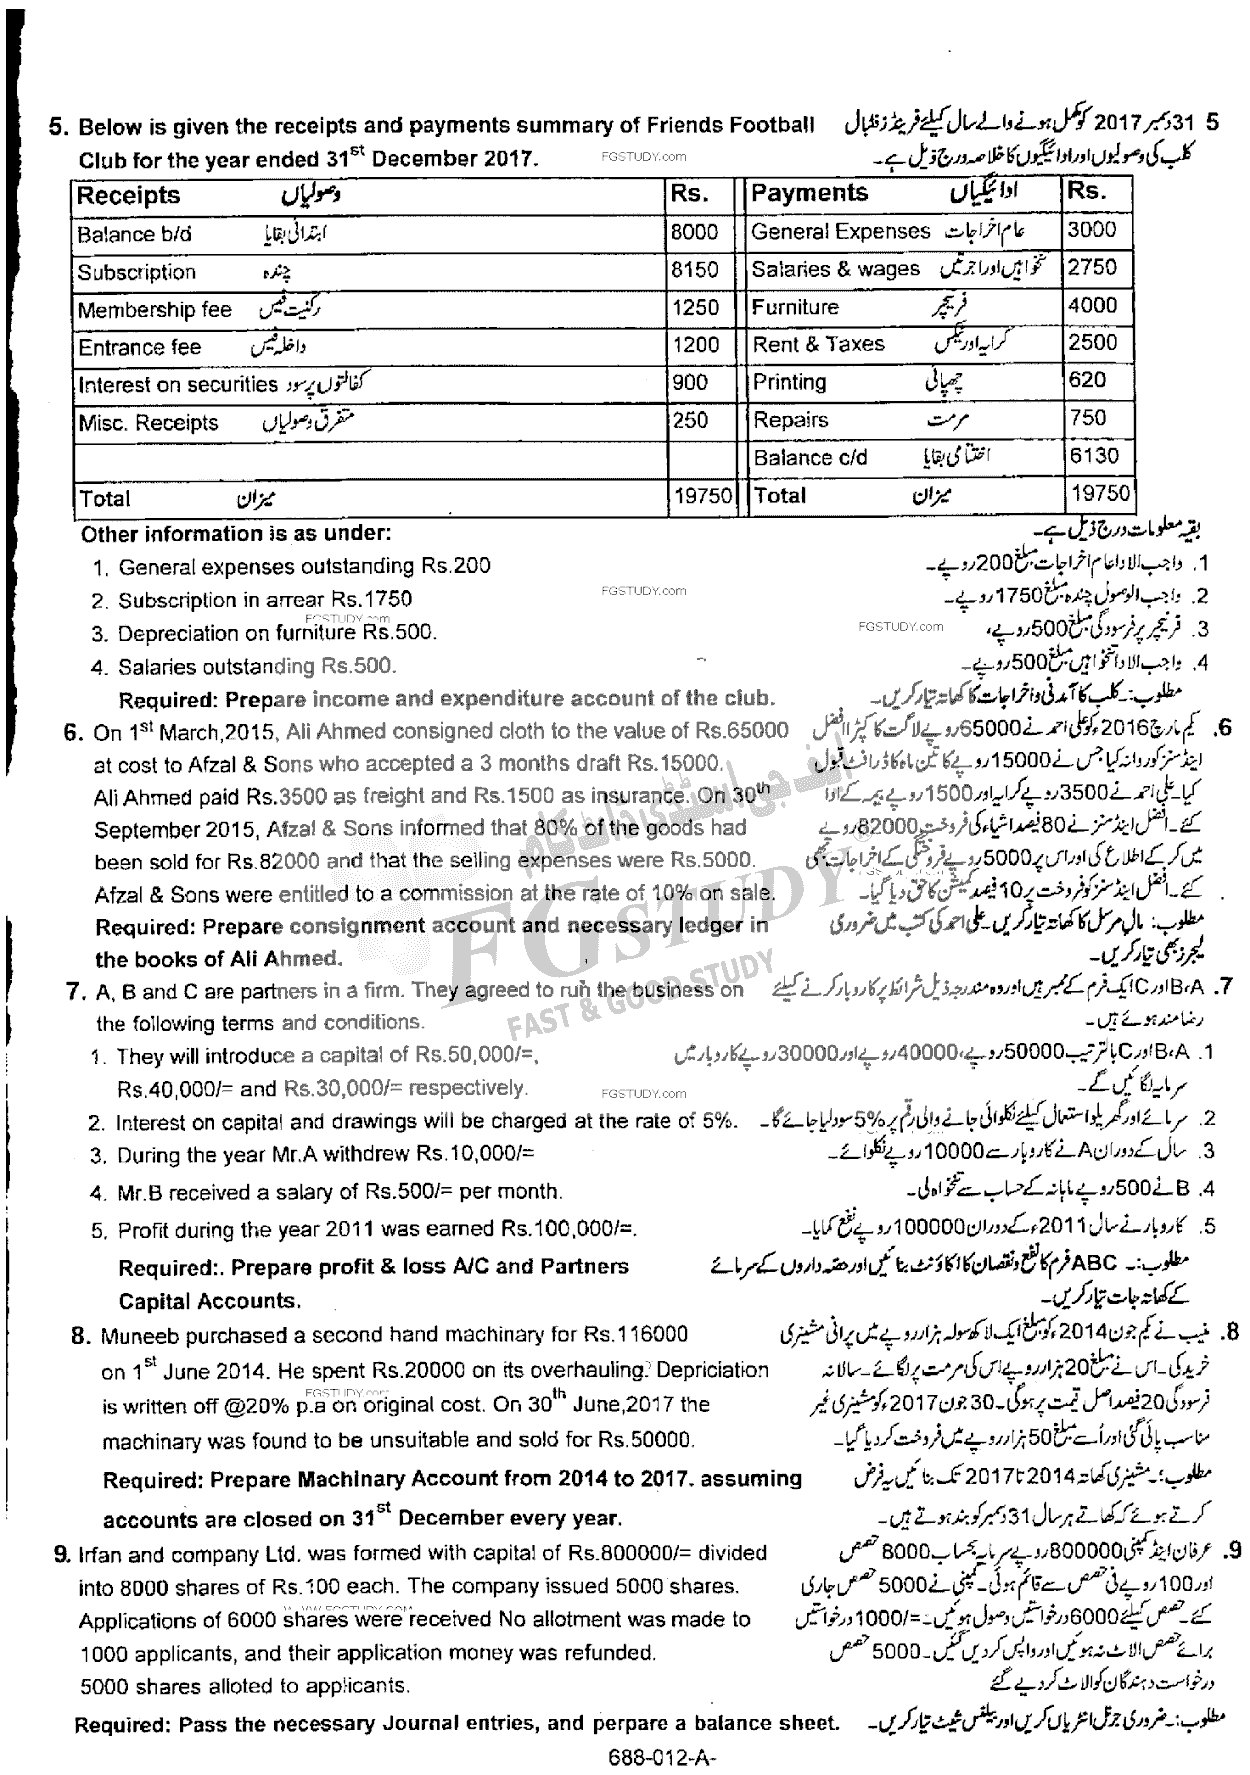 5. Below is given the receipts and payments summary of Friends Football
31 دسمبر 2017 کو مکمل ہونے والے سال کیلئے فرینڈز فٹبال 5
Club for the year ended 31st December 2017.
FGSTUDY.com
کلب کی وصولیوں اور ادائیگیوں کا خلاصہ درج ذیل ہے۔
Receipts وصولیاں Rs. Payments ادائیگیاں Rs.
Balance b/d ابتدائی بقایا 8000 General Expenses عام اخراجات 3000
Subscription چندہ 8150 Salaries & wages تنخواہیں اور اجرتیں 2750
Membership fee رکنیت فیس 1250 Furniture فرنیچر 4000
Entrance fee داخلہ فیس 1200 Rent & Taxes کرایہ اور ٹیکس 2500
Interest on securities کفالتوں پر سود 900 Printing چھپائی 620
Misc. Receipts متفرق وصولیاں 250 Repairs مرمت 750
Balance c/d اختتامی بقایا 6130
Total میزان 19750 Total میزان 19750
Other information is as under:
بقیہ معلومات درج ذیل ہے۔
1. General expenses outstanding Rs.200
1. واجب الادا عام اخراجات مبلغ 200 روپے۔
2. Subscription in arrear Rs.1750
FGSTUDY.com
2. واجب الوصول چندہ مبلغ 1750 روپے۔
FGSTUDY.com
3. Depreciation on furniture Rs.500.
FGSTUDY.com
3. فرنیچر پر فرسودگی مبلغ 500 روپے،
4. Salaries outstanding Rs.500.
4. واجب الادا تنخواہیں مبلغ 500 روپے۔
Required: Prepare income and expenditure account of the club.
مطلوب:۔ کلب کا آمدنی و اخراجات کا کھاتہ تیار کریں۔
6. On 1st March,2015, Ali Ahmed consigned cloth to the value of Rs.65000
6. یکم مارچ 2016ء کو علی احمد نے 65000 روپے لاگت کا کپڑا افضل
at cost to Afzal & Sons who accepted a 3 months draft Rs.15000.
اینڈ سنز کو روانہ کیا جس نے 15000 روپے کا تین ماہ کا ڈرافٹ قبول
Ali Ahmed paid Rs.3500 as freight and Rs.1500 as insurance. On 30th
کیا۔ علی احمد نے 3500 روپے کرایہ اور 1500 روپے بیمہ کے ادا
September 2015, Afzal & Sons informed that 80% of the goods had
کئے۔ افضل اینڈ سنز نے 80 فیصد اشیاء کی فروخت 82000 روپے
been sold for Rs.82000 and that the selling expenses were Rs.5000.
میں کر کے اطلاع کی اور اس پر 5000 روپے فروختگی کے اخراجات بھی
Afzal & Sons were entitled to a commission at the rate of 10% on sale.
کئے۔ افضل اینڈ سنز کو فروخت پر 10 فیصد کمیشن کا حق دیا گیا۔
Required: Prepare consignment account and necessary ledger in
مطلوب: مال مرسل کا کھاتہ تیار کریں۔ علی احمد کی کتب میں ضروری
the books of Ali Ahmed.
لیجرز بھی تیار کریں۔
ایف جی اسٹڈی ڈاٹ کام
FGSTUDY
FAST & GOOD STUDY
7. A, B and C are partners in a firm. They agreed to run the business on
7. A،B اور C ایک فرم کے ممبر ہیں اور وہ مندرجہ ذیل شرائط پر کاروبار کرنے کیلئے
the following terms and conditions.
رضامند ہوئے ہیں۔
1. They will introduce a capital of Rs.50,000/=,
1. B،A اور C بالترتیب 50000 روپے، 40000 روپے اور 30000 روپے کاروبار میں
Rs.40,000/= and Rs.30,000/= respectively.
FGSTUDY.com
سرمایہ لگائیں گے۔
2. Interest on capital and drawings will be charged at the rate of 5%.
2. سرمائے اور گھریلو استعمال کیلئے نکلوائی جانے والی رقم پر 5% سود لیا جائے گا۔
3. During the year Mr.A withdrew Rs.10,000/=
3. سال کے دوران A نے کاروبار سے 10000 روپے نکلوائے۔
4. Mr.B received a salary of Rs.500/= per month.
4. B نے 500 روپے ماہانہ کے حساب سے تنخواہ لی۔
5. Profit during the year 2011 was earned Rs.100,000/=.
5. کاروبار نے سال 2011ء کے دوران 100000 روپے نفع کمایا۔
Required:. Prepare profit & loss A/C and Partners
مطلوب:۔ ABC فرم کا نفع و نقصان کا اکاؤنٹ بنائیں اور حصہ داروں کے سرمائے
Capital Accounts.
کے کھاتہ جات تیار کریں۔
8. Muneeb purchased a second hand machinary for Rs.116000
8. منیب نے یکم جون 2014 کو مبلغ ایک لاکھ سولہ ہزار روپے میں پرانی مشینری
on 1st June 2014. He spent Rs.20000 on its overhauling. Depriciation
خریدی۔ اس نے مبلغ 20 ہزار روپے اس کی مرمت پر لگائے۔ سالانہ
FGSTUDY.com
is written off @20% p.a on original cost. On 30th June,2017 the
فرسودگی 20 فیصد اصل قیمت پر ہوگی۔ 30 جون 2017ء کو مشینری غیر
machinary was found to be unsuitable and sold for Rs.50000.
مناسب پائی گئی اور اُسے مبلغ 50 ہزار روپے میں فروخت کر دیا گیا۔
Required: Prepare Machinary Account from 2014 to 2017. assuming
مطلوب:۔ مشینری کھاتہ 2014 تا 2017 تک بنائیں یہ فرض
accounts are closed on 31st December every year.
کرتے ہوئے کہ کھاتے ہر سال 31 دسمبر کو بند ہوتے ہیں۔
9. Irfan and company Ltd. was formed with capital of Rs.800000/= divided
9. عرفان اینڈ کمپنی 800000 روپے سرمایہ بحساب 8000 حصص
into 8000 shares of Rs.100 each. The company issued 5000 shares.
اور 100 روپے فی حصص سے قائم ہوئی۔ کمپنی نے 5000 حصص جاری
Applications of 6000 shares were received No allotment was made to
کئے۔ حصص کیلئے 6000 درخواستیں وصول ہوئیں۔ =/1000 درخواستیں
1000 applicants, and their application money was refunded.
برائے حصص الاٹ نہ ہوئیں اور واپس کر دیں گئیں۔ 5000 حصص
5000 shares alloted to applicants.
درخواست دہندگان کو الاٹ کر دیے گئے
Required: Pass the necessary Journal entries, and perpare a balance sheet.
مطلوب:۔ ضروری جرنل انٹریاں کریں اور بیلنس شیٹ تیار کریں۔
688-012-A-